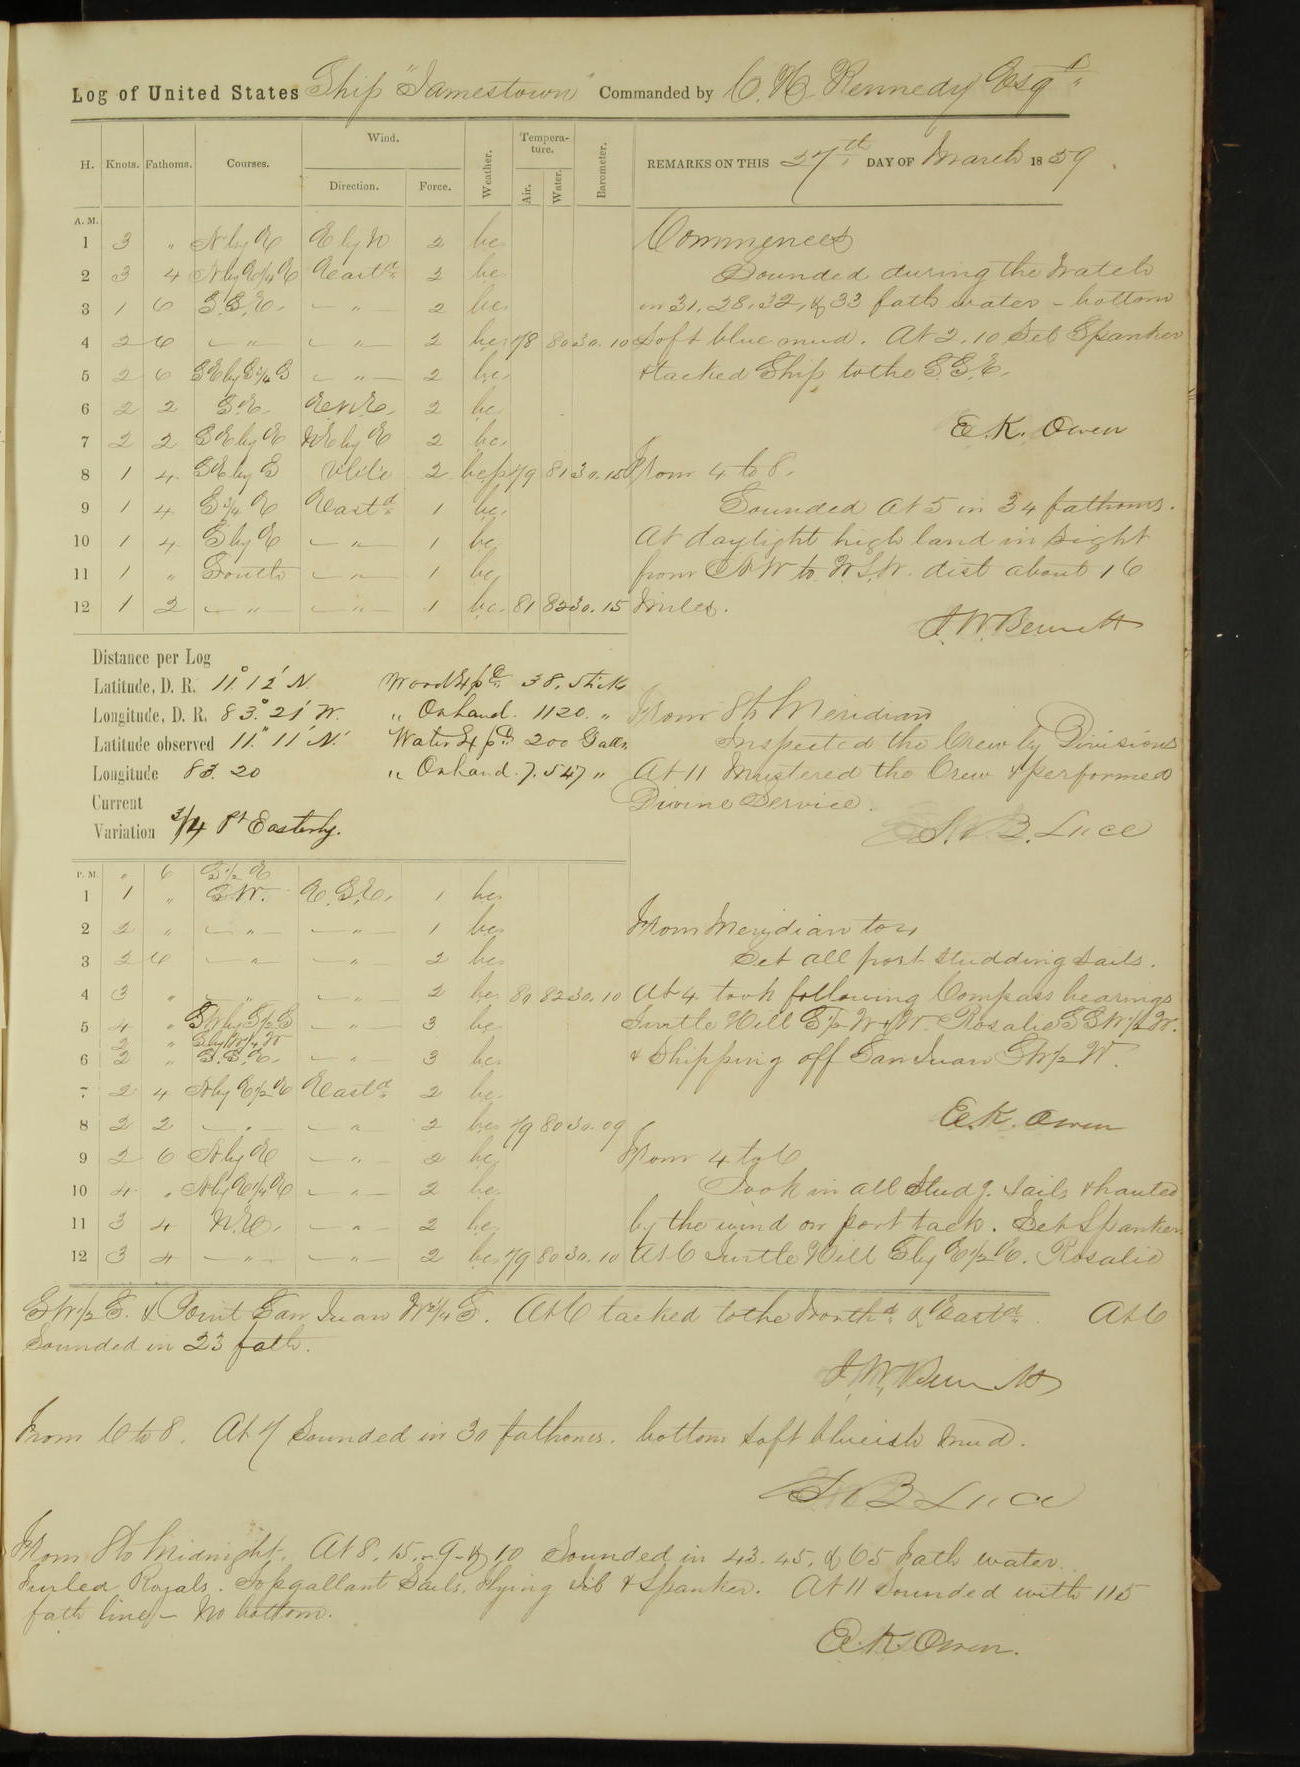 Log of United States Ship "Jamestown" Commanded by C. H. Kennedy Esqr.
H. Knots. Fathoms. Courses. Wind. Direction. Force. Weather. Temperature. Air. Water. Barometer. REMARKS ON THIS 27th DAY OF March 1859.
A. M.
1 3 " N by E E by N 2 bc
2 3 4 N by E 1/4 E Eastd 2 bc
3 1 6 S.S.E. — " — 2 bc
4 2 6 — " — — " — 2 bc 78 80 30.10
5 2 6 SE by S 3/4 S — " — 2 bc
6 2 2 S.E. E.N.E. 2 bc
7 2 2 SE by E NE by E 2 bc
8 1 4 SE by S Vble 2 bcp 79 81 30.15
9 1 4 S 3/4 E Eastd 1 bc
10 1 4 S by E — " — 1 bc
11 1 " South — " — 1 bc
12 1 2 — " — — " — 1 bc 81 82 30.15
Commences
Sounded during the Watch
in 31, 28, 32, & 33 fath water – bottom
soft blue mud. At 2.10 Set Spanker
& tacked Ship to the S.S.E.
E. K. Owen
From 4 to 8.
Sounded at 5 in 34 fathoms.
At daylight high land in sight
from to W.S.W. dist about 16
miles.
J. W. Bennett
Distance per Log
Latitude, D. R. 11° 12' N. Wood Expd. 38. Stick
Longitude, D. R. 83° 21' W. " On hand. 1120. "
Latitude observed 11° 11' N. Water Expd. 200 Galls
Longitude 83. 20 " On hand. 7.547 "
Current
Variation 3/4 Pt Easterly.
From 8 to Meridian
Inspected the Crew by Divisions
At 11 Mustered the Crew & performed
Divine Service.
S. B. Luce
P. M. " 6 S 1/2 E
1 1 " S.W. E.S.E. 1 bc
2 2 " — " — — " — 1 bc
3 2 6 — " — — " — 2 bc
4 3 " — " — — " — 2 bc 80 82 30.10
5 4 " SW by S 1/2 S — " — 3 bc
2 " S by W 1/4 W
6 2 " S.S.E. — " — 3 bc
7 2 4 N by E 1/2 E Eastd 2 bc
8 2 2 — " — — " — 2 bc 79 80 30.09
9 2 6 N by E — " — 2 bc
10 4 " N by E 1/4 E — " — 2 bc
11 3 4 N.E. — " — 2 bc
12 3 4 — " — — " — 2 bc 79 80 30.10
From Meridian to 4
Set all port studding sails.
At 4 took following Compass bearings
Turtle Hill Rosalie SSW 1/2 W.
& Shipping off San Juan SW 1/2 W.
E. K. Owen
From 4 to 6
Took in all studg. sails & hauled
by the wind on port tack. Set Spanker
At 6 Turtle Hill S by E 1/2 E. Rosalie
SW 1/2 S. & Point San Juan At 6 tacked to the Northd & Eastd. At 6
Sounded in 23 fath.
J. W. Bennett
From 6 to 8. At 7 Sounded in 30 fathoms. bottom soft blueish mud.
S. B. Luce
From 8 to Midnight. At 8.15. – 9 – & 10 Sounded in 43. 45. & 65 fath water.
Furled Royals. Topgallant Sails, Flying Jib & Spanker. At 11 Sounded with 115
fath line – No bottom.
E. K. Owen.